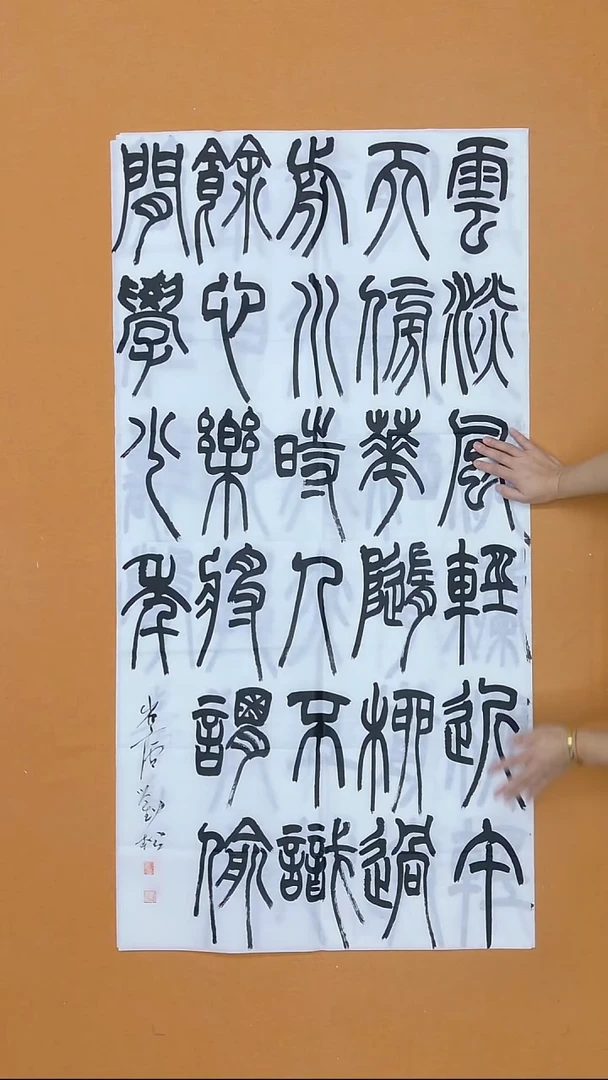 雲淡風輕近午
天傍華隨柳過
前川時人不識
餘心樂將謂偷
閒學少年
劉松